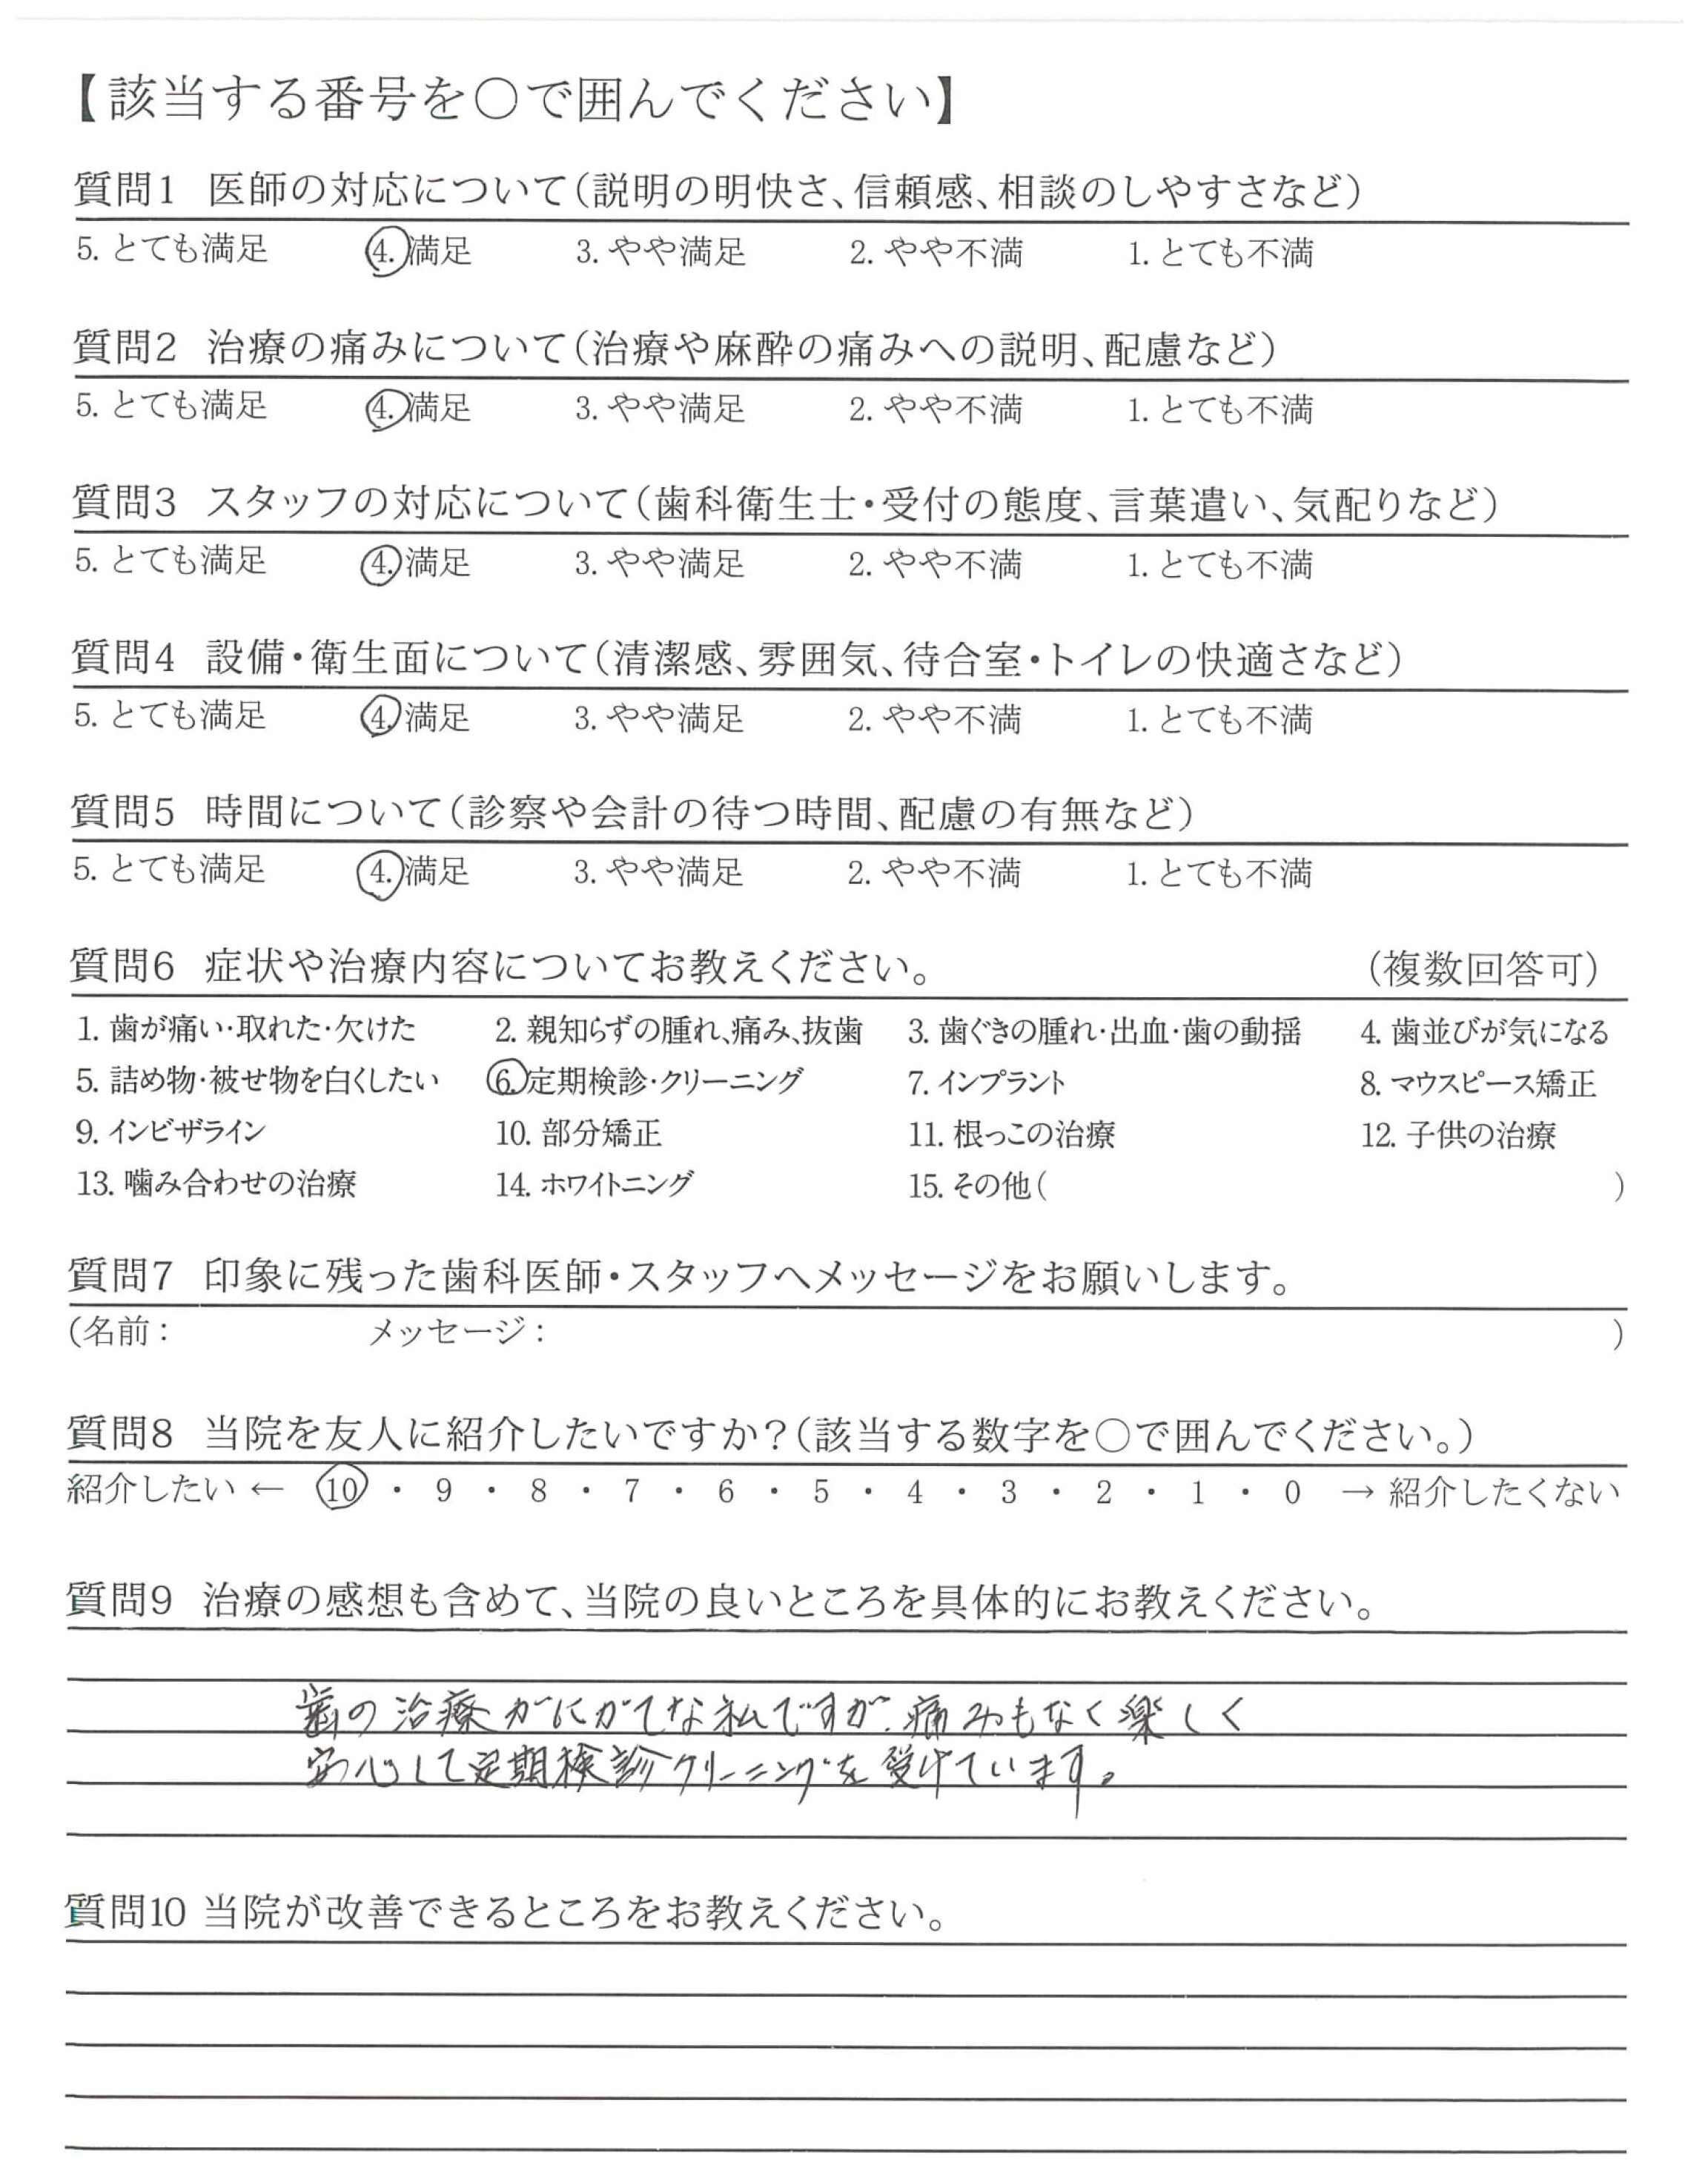 【該当する番号を〇で囲んでください】
質問1 医師の対応について(説明の明快さ、信頼感、相談のしやすさなど)
5. とても満足 4. 満足 3. やや満足 2. やや不満 1. とても不満
質問2 治療の痛みについて(治療や麻酔の痛みへの説明、配慮など)
5. とても満足 4. 満足 3. やや満足 2. やや不満 1. とても不満
質問3 スタッフの対応について(歯科衛生士・受付の態度、言葉遣い、気配りなど)
5. とても満足 4. 満足 3. やや満足 2. やや不満 1. とても不満
質問4 設備・衛生面について(清潔感、雰囲気、待合室・トイレの快適さなど)
5. とても満足 4. 満足 3. やや満足 2. やや不満 1. とても不満
質問5 時間について(診察や会計の待つ時間、配慮の有無など)
5. とても満足 4. 満足 3. やや満足 2. やや不満 1. とても不満
質問6 症状や治療内容についてお教えください。 (複数回答可)
1. 歯が痛い・取れた・欠けた 2. 親知らずの腫れ、痛み、抜歯 3. 歯ぐきの腫れ・出血・歯の動揺 4. 歯並びが気になる
5. 詰め物・被せ物を白くしたい 6. 定期検診・クリーニング 7. インプラント 8. マウスピース矯正
9. インビザライン 10. 部分矯正 11. 根っこの治療 12. 子供の治療
13. 噛み合わせの治療 14. ホワイトニング 15. その他( )
質問7 印象に残った歯科医師・スタッフへメッセージをお願いします。
(名前: メッセージ: )
質問8 当院を友人に紹介したいですか?(該当する数字を〇で囲んでください。)
紹介したい ← 10 ・ 9 ・ 8 ・ 7 ・ 6 ・ 5 ・ 4 ・ 3 ・ 2 ・ 1 ・ 0 → 紹介したくない
質問9 治療の感想も含めて、当院の良いところを具体的にお教えください。
歯の治療がにがてな私ですが、痛みもなく楽しく
安心して定期検診クリーニングを受けています。
質問10 当院が改善できるところをお教えください。